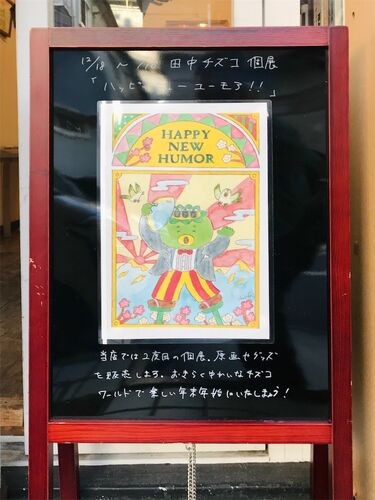 12/18 〜 田中チズコ 個展
「ハッピーニューユーモア!!」
HAPPY
NEW
HUMOR
当店では2度目の個展。原画やグッズ
を販売します。おきらくゆかいなチズコ
ワールドで楽しい年末年始にいたしましょう!